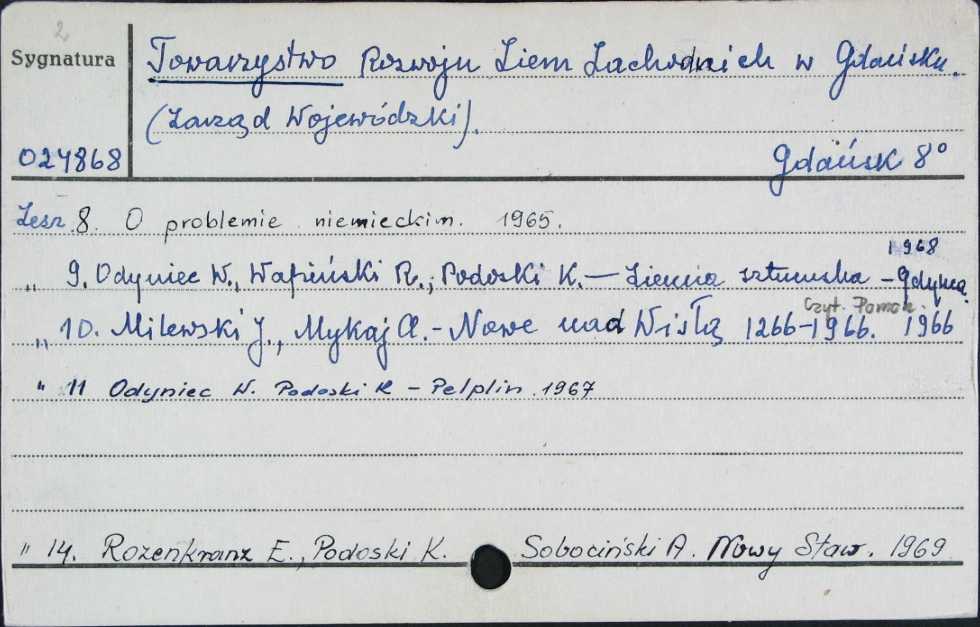 2
Sygnatura
Towarzystwo Rozwoju Ziem Zachodnich w Gdańsku.
(Zarząd Wojewódzki).
024868
Gdańsk 8°
Zesz. 8. O problemie niemieckim. 1965.
1968
„ 9. Odyniec W., Wapiński R., Podoski K. — Ziemia sztumska – Gdynia
Czyt. Pomor.
„ 10. Milewski J., Mykaj A. - Nowe nad Wisłą 1266-1966. 1966
" 11 Odyniec W. Podoski K – Pelplin. 1967
" 14. Rozenkranz E., Podoski K. Sobociński A. Nowy Staw. 1969